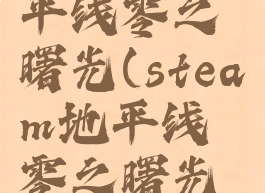 平线零之
曙光(stea
m地平线
零之曙光